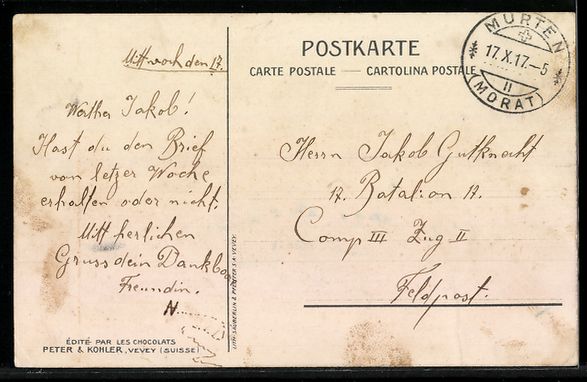 Mittwoch den 17.
Werther Jakob!
Hast du den Brief
von letzer Woche
erhalten oder nicht.
Mitt herlichen
Gruss dein Dankba
Freundin.
N.
ÉDITÉ PAR LES CHOCOLATS
PETER & KOHLER, VEVEY (SUISSE)
LITH. SÄUBERLIN & PFEIFFER S.A. VEVEY.
POSTKARTE
CARTE POSTALE — CARTOLINA POSTALE
MURTEN
17.X.17.–5
II
(MORAT)
Herrn Jakob Gutknecht
Batalion
Comp III Zug II
Feldpost.